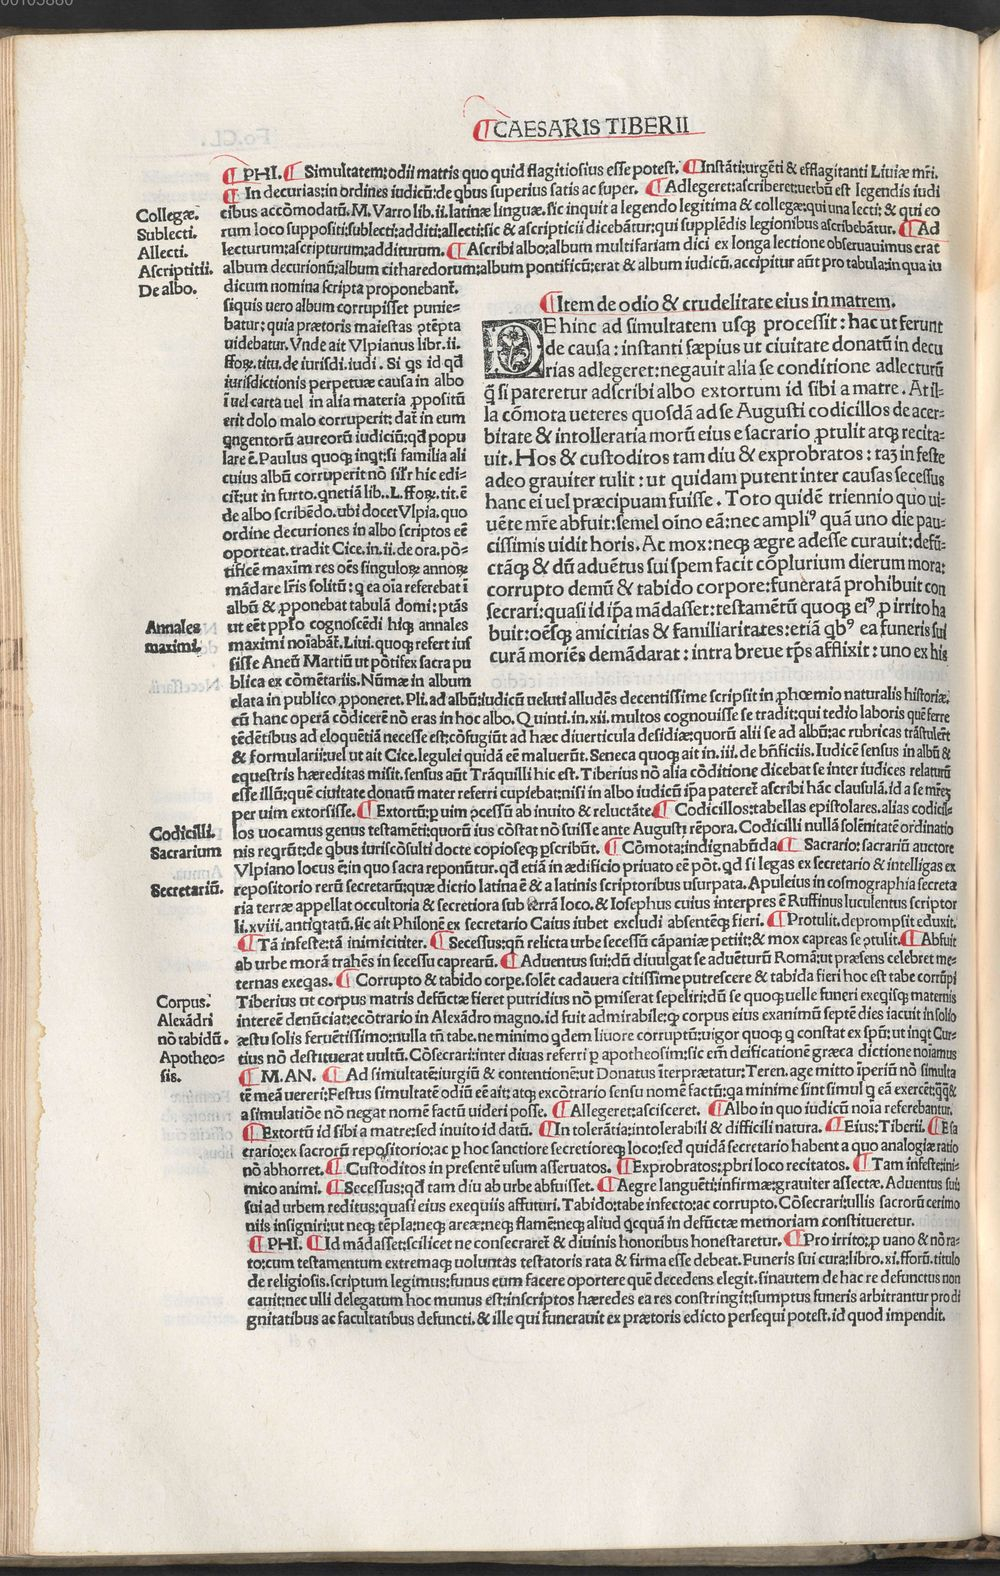 00103880
¶CAESARIS TIBERII
¶ PHI. ¶ Simultatem:odii matris quo quid flagitiosius esse potest. ¶Instāti:urgēti & efflagitanti Liuiæ mr̄i.
¶ In decurias:in ordines iudicū:de qbus superius satis ac super. ¶ Adlegeret:ascriberet:uerbū est legendis iudi
Collegæ.
Sublecti.
Allecti.
Ascriptitii.
De albo.
cibus accōmodatū.M.Varro lib.ii.latinæ linguæ.sic inquit a legendo legitima & collegæ:qui una lecti: & qui eo
rum loco suppositi:sublecti:additi:allecti:sic & ascripticii dicebātur:qui supplēdis legionibus ascribebātur. ¶Ad
lecturum:ascripturum:additurum. ¶Ascribi albo:album multifariam dici ex longa lectione obseruauimus erat
album decurionū:album citharedorum:album pontificū:erat & album iudicū.accipitur aūt pro tabula:in qua iu
dicum nomina scripta proponebant̄.
siquis uero album corrupisset punie=
batur: quia prætoris maiestas ptēpta
uidebatur. Vnde ait Vlpianus libr.ii.
ffoꝝ.titu.de iurisdi.iudi. Si qs id qd̄
iurisdictionis perpetuæ causa in albo
ī uel carta uel in alia materia ꝓpositū
erit dolo malo corruperit: dat̄ in eum
qngentorū aureorū iudiciū:qd̄ popu
lare ē.Paulus quoqꝫ inqt:si familia ali
cuius albū corruperit nō silr hic edi=
cit̄:ut in furto.qnetiā lib..L.ffoꝝ.tit.ē
de albo scribēdo.ubi docet Vlpia.quo
ordine decuriones in albo scriptos eē
oporteat.tradit Cice.in.ii.de ora.pō=
tificē maxim res oēs singuloꝝ annoꝝ
mādare lr̄is solitū: q ea oīa referebat ī
albū & ꝓponebat tabulā domi: ptās
Annales
maximi.
ut eēt pp̄lo cognoscēdi hiqꝫ annales
maximi noīabāt̄.Liui.quoqꝫ refert ius
sisse Aneū Martiū ut pōtifex sacra pu
blica ex cōmētariis.Nūmæ in album
¶Item de odio & crudelitate eius in matrem.
DE hinc ad simultatem usqꝫ processit: hac ut ferunt
de causa: instanti sæpius ut ciuitate donatū in decu
rias adlegeret:negauit alia se conditione adlecturū
q̄ si pateretur adscribi albo extortum id sibi a matre. At il=
la cōmota ueteres quosdā ad se Augusti codicillos de acer=
bitate & intolleratia morū eius e sacrario ꝓtulit atqꝫ recita=
uit. Hos & custoditos tam diu & exprobratos: taꝫ infeste
adeo grauiter tulit: ut quidam putent inter causas secessus
hanc ei uel præcipuam fuisse. Toto quidē triennio quo ui=
uēte mr̄e abfuit:semel oīno eā:nec ampliꝰ quā uno die pau=
cissimis uidit horis. Ac mox:neqꝫ ægre adesse curauit:defū=
ctāqꝫ & dū aduētus sui spem facit cōplurium dierum mora:
corrupto demū & tabido corpore:funeratā prohibuit con
secrari:quasi id ip̄a mādasset:testamētū quoqꝫ eiꝰ ꝓ irrito ha
buit:oēsqꝫ amicitias & familiaritates:etiā qbꝰ ea funeris sui
curā moriēs demādarat: intra breue tp̄s afflixit: uno ex his
elata in publico ꝓponeret.Pli.ad albū:iudicū ueluti alludēs decentissime scripsit in phœmio naturalis historiæ.
cū hanc operā cōdicerē nō eras in hoc albo. Quinti.in.xii.multos cognouisse se tradit:qui tedio laboris quē ferre
tēdētibus ad eloquētiā necesse est:cōfugiūt ad hæc diuerticula desidiæ:quorū alii se ad albū:ac rubricas trāstulēt
& formularii:uel ut ait Cice.legulei quidā eē maluerūt. Seneca quoqꝫ ait in.iii.de bn̄ficiis. Iudicē sensus in albū &
equestris hæreditas misit.sensus aūt Trāquilli hic est. Tiberius nō alia cōditione dicebat se inter iudices relaturū
esse illū:quē ciuitate donatū mater referri cupiebat:nisi in albo iudicū ip̄a pateret̄ ascribi hāc clausulā.id a se mr̄eꝫ
per uim extorsisse. ¶Extortū:p uim ꝓcessū ab inuito & reluctāte. ¶ Codicillos:tabellas epistolares.alias codicil=
Codicilli.
Sacrarium
los uocamus genus testamēti:quorū ius cōstat nō fuisse ante Augusti tēpora. Codicilli nullā solēnitatē ordinatio
nis reqrūt:de qbus iuriscōsulti docte copioseqꝫ pscribūt. ¶ Cōmota:indignabūda ¶ Sacrario:sacrariū auctore
Vlpiano locus ē:in quo sacra reponūtur.qd̄ etiā in ædificio priuato eē pōt.qd̄ si legas ex secretario & intelligas ex
Secretariū.
repositorio rerū secretarū:quæ dictio latina ē & a latinis scriptoribus usurpata. Apuleius in cosmographia secreta
ria terræ appellat occultoria & secretiora sub terrā loco. & Iosephus cuius interpres ē Ruffinus luculentus scriptor
li.xviii.antiqtatū.sic ait Philonē ex secretario Caius iubet excludi absentēqꝫ fieri. ¶Protulit.deprompsit eduxit.
¶ Tā infeste:tā inimicititer. ¶Secessus:qn̄ relicta urbe secessū cāpaniæ petiit:& mox capreas se ꝓtulit. ¶Abfuit
ab urbe morā trahēs in secessu caprearū. ¶ Aduentus sui:dū diuulgat se aduēturū Romā:ut præsens celebret ma=
ternas exeqas. ¶ Corrupto & tabido corpe.solēt cadauera citissime putrescere & tabida fieri hoc est tabe corrūpi
Corpus.
Alexādri
nō tabidū.
Apotheo=
sis.
Tiberius ut corpus matris defūctæ fieret putridius nō pmiserat sepeliri:dū se quoqꝫ uelle funeri exeqisqꝫ maternis
intereē denūciat:ecōtrario in Alexādro magno.id fuit admirabile:qꝫ corpus eius exanimū septē dies iacuit in solio
æstu solis feruētissimo:nulla tn̄ tabe.ne minimo qdem liuore corruptū:uigor quoqꝫ q constat ex spū:ut inqt Cur=
tius nō destituerat uultū. Cōsecrari:inter diuas referri p apotheosim:sic em̄ deificationē græca dictione noīamus
¶ M.AN. ¶ Ad simultatē:iurgiū & contentionē:ut Donatus īterprætatur:Teren.age mitto īperiū nō simulta
tē meā uereri:Festus simultatē odiū eē ait:atqꝫ excōtrario sensu nomē factū:qa minime sint simul q eā exercēt:qq̄ &
a simulatiōe nō negat nomē factū uideri posse. ¶Allegeret:ascisceret. ¶Albo in quo iudicū noīa referebantur.
¶Extortū id sibi a matre:sed inuito id datū. ¶In tolerātia:intolerabili & difficili natura. ¶Eius:Tiberii. ¶E sa
crario:ex sacrorū repositorio:ac p hoc sanctiore secretioreqꝫ loco:sed quidā secretario habent a quo analogiæ ratio
nō abhorret. ¶ Custoditos in presentē usum asseruatos. ¶Exprobratos:pbri loco recitatos. ¶Tam infeste:ini=
mico animi. ¶Secessus:qd̄ tam diu ab urbe abfuisset. ¶Aegre languēti:infirmæ:grauiter affectæ. Aduentus sui:
sui ad urbem reditus:quasi eius exequiis affuturi. Tabido:tabe infecto:ac corrupto. Cōsecrari:ullis sacrorū cerimo
niis insigniri:ut neqꝫ tēpla:neqꝫ areæ:neqꝫ flamē:neqꝫ aliud qcquā in defūctæ memoriam constitueretur.
¶PHI. ¶Id mādasset:scilicet ne consecraret̄ & diuinis honoribus honestaretur. ¶Pro irrito:p uano & nō ra=
to:cum testamentum extremaqꝫ uoluntas testatoris rata & firma esse debeat. Funeris sui cura:libro.xi.fforū.titulo
de religiosis.scriptum legimus:funus eum facere oportere quē decedens elegit.sinautem de hac re defunctus non
cauit:nec ulli delegatum hoc munus est:inscriptos hæredes ea res constringit:sumptus funeris arbitrantur pro di
gnitatibus ac facultatibus defuncti.& ille qui funerauit ex prætoris edicto persequi potest.id quod impendit.